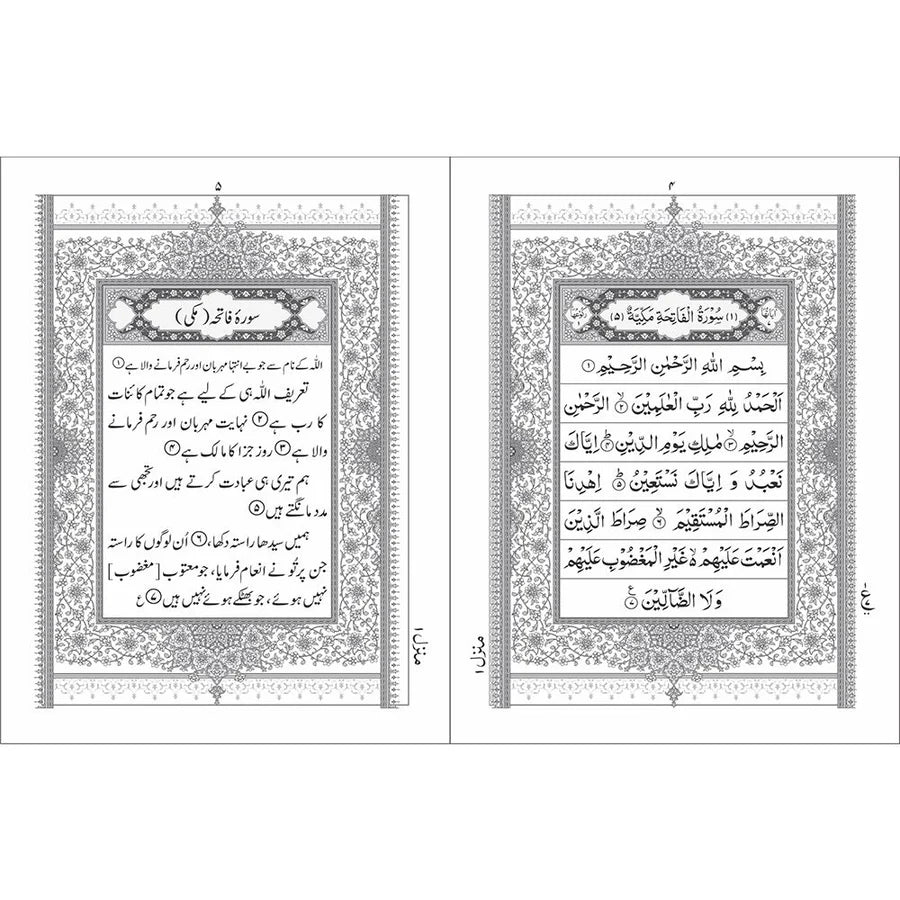 ۴
(۱) سُوْرَةُ الْفَاتِحَةِ مَكِّيَّةٌ (۵)
بِسْمِ اللّٰهِ الرَّحْمٰنِ الرَّحِيْمِ ۝۱
اَلْحَمْدُ لِلّٰهِ رَبِّ الْعٰلَمِيْنَ ۙ۝۲ الرَّحْمٰنِ
الرَّحِيْمِ ۙ۝۳ مٰلِكِ يَوْمِ الدِّيْنِ ؕ۝۴ اِيَّاكَ
نَعْبُدُ وَ اِيَّاكَ نَسْتَعِيْنُ ؕ۝۵ اِهْدِنَا
الصِّرَاطَ الْمُسْتَقِيْمَ ۙ۝۶ صِرَاطَ الَّذِيْنَ
اَنْعَمْتَ عَلَيْهِمْ ۙ۬ غَيْرِ الْمَغْضُوْبِ عَلَيْهِمْ
وَلَا الضَّآلِّيْنَ ۝۷
منزل ۱
۵
سورۂ فاتحہ (مکی)
اللہ کے نام سے جو بے انتہا مہربان اور رحم فرمانے والا ہے ۝۱
تعریف اللہ ہی کے لیے ہے جو تمام کائنات
کا رب ہے ۝۲ نہایت مہربان اور رحم فرمانے
والا ہے ۝۳ روز جزا کا مالک ہے ۝۴
ہم تیری ہی عبادت کرتے ہیں اور تجھی سے
مدد مانگتے ہیں ۝۵
ہمیں سیدھا راستہ دکھا، ۝۶ اُن لوگوں کا راستہ
جن پر تُو نے انعام فرمایا، جو معتوب [مغضوب]
نہیں ہوئے، جو بھٹکے ہوئے نہیں ہیں ۝۷ ع
منزل ۱